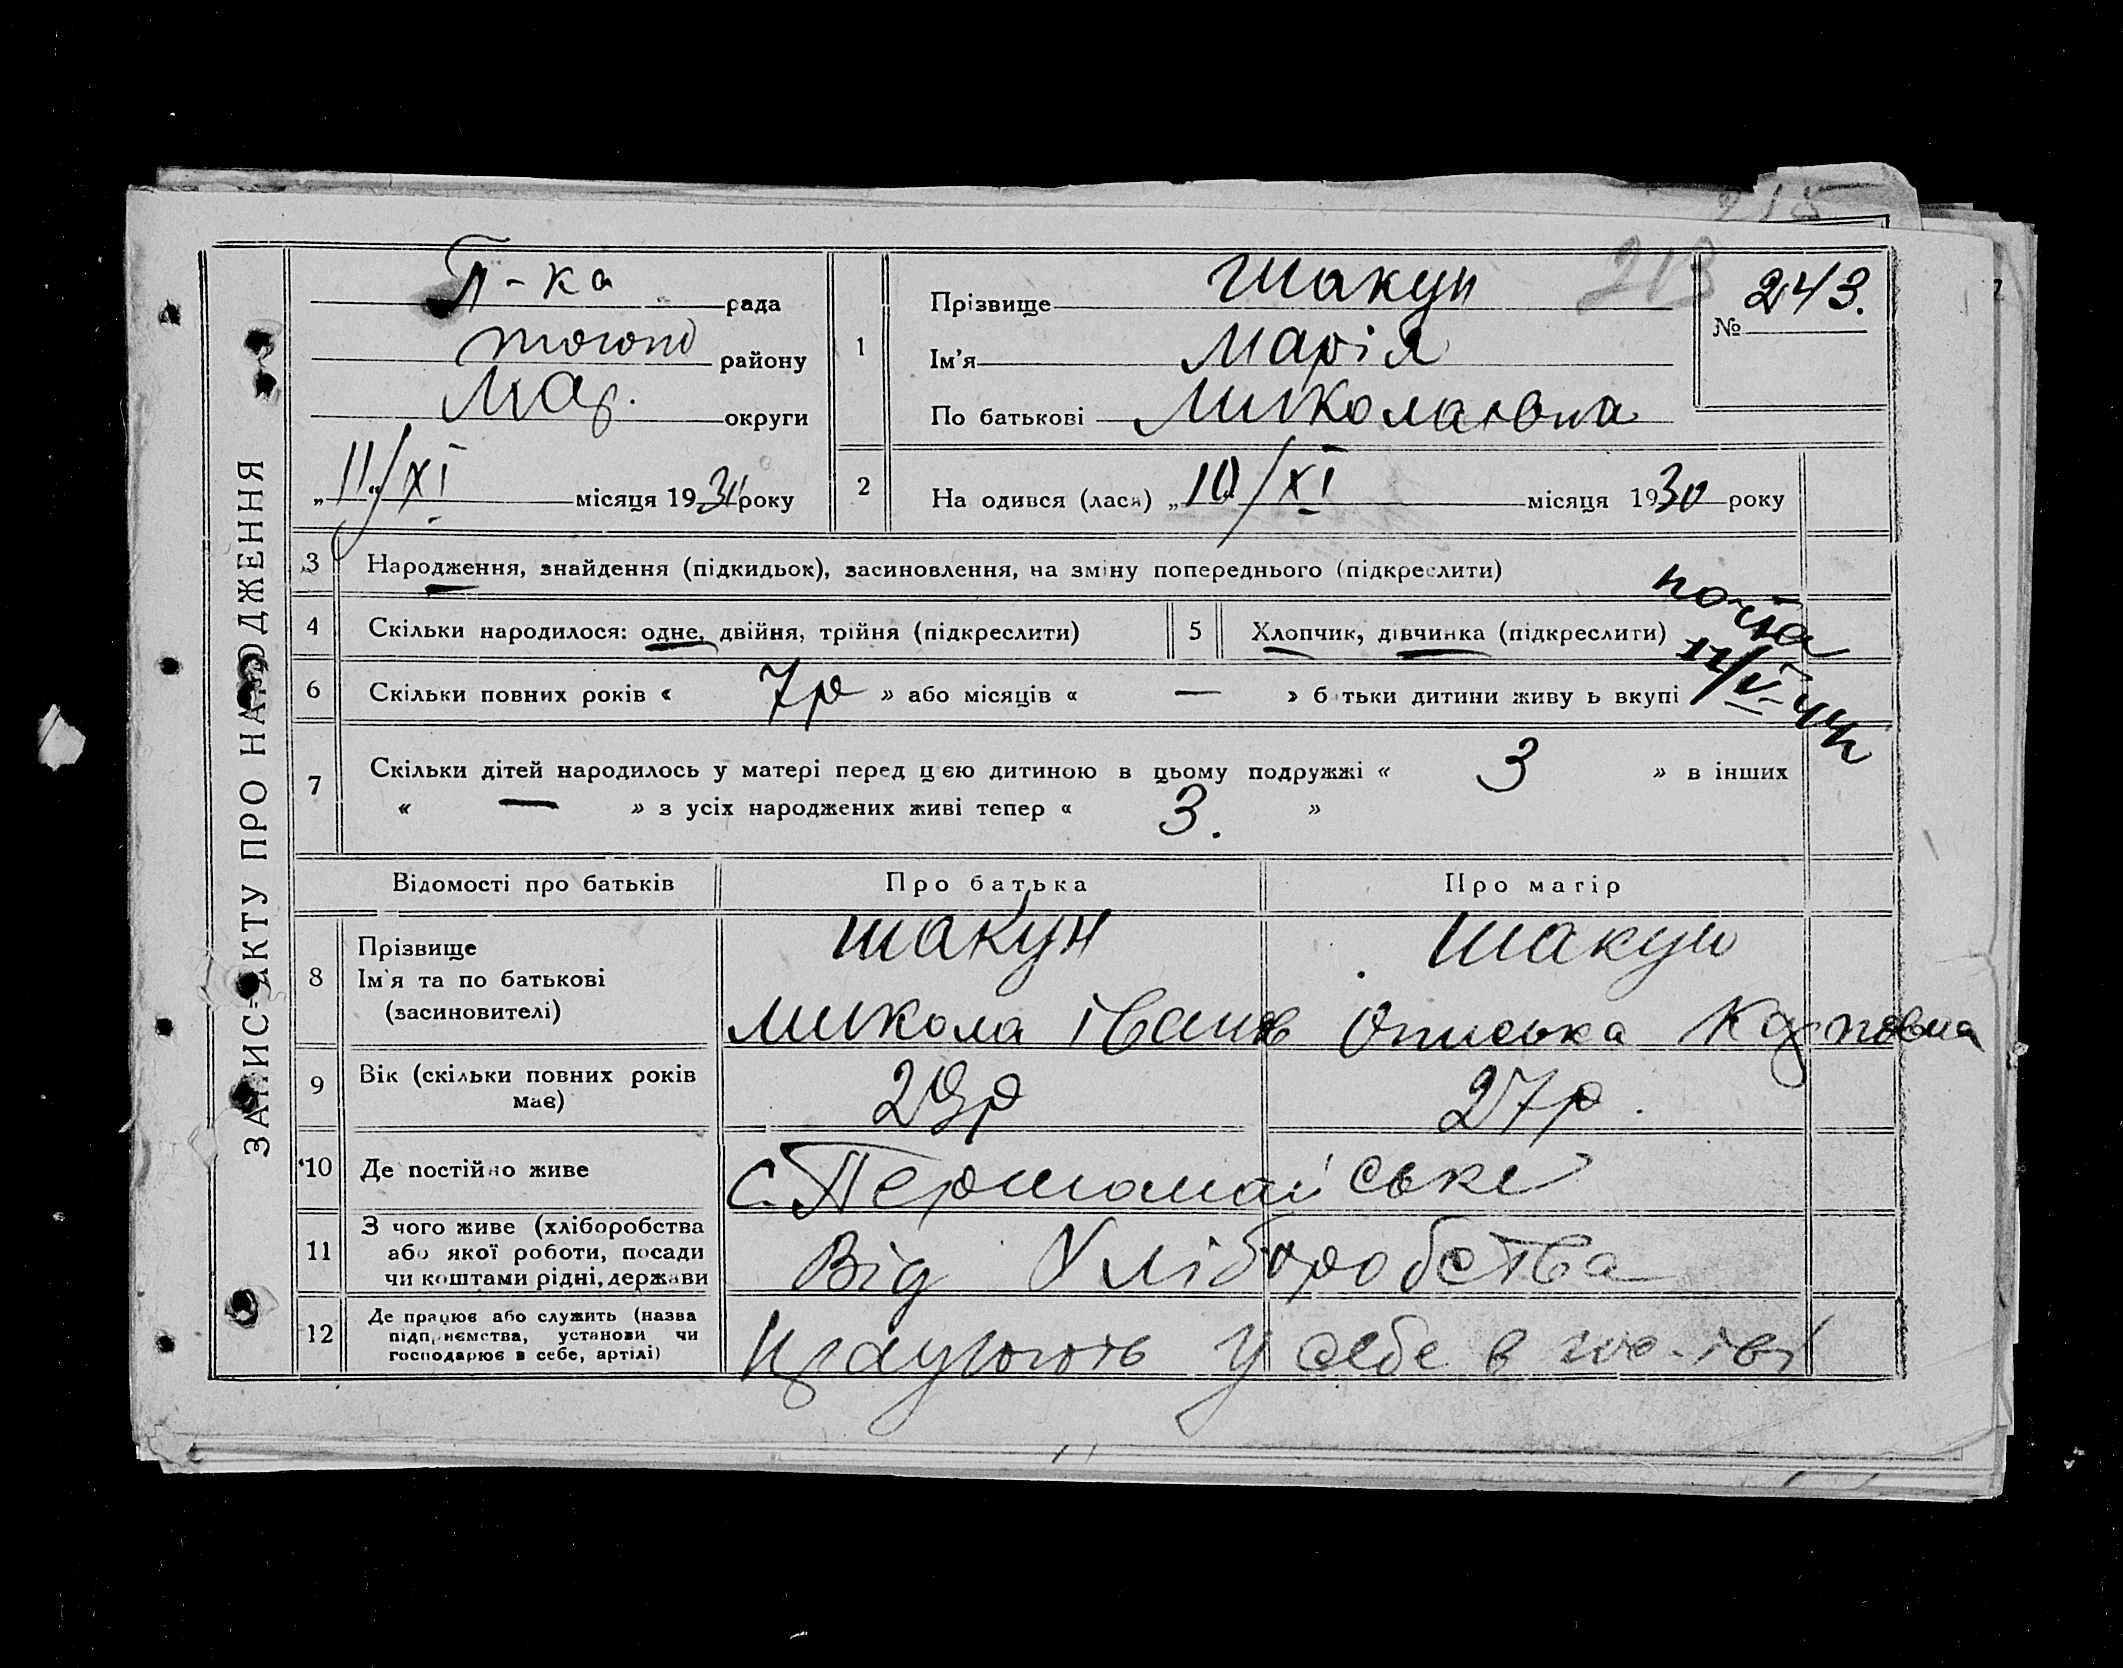 215
213
ЗАПИС АКТУ ПРО НАРОДЖЕННЯ
П-ка рада
району
Мар. округи
„11/XI місяця 19 року
1
Прізвище Шакун
Ім'я Марія
По батькові Миколаївна
№ 243.
2
На одився (лася) „10/XI місяця 1930 року
3 Народження, знайдення (підкидьок), засиновлення, на зміну попереднього (підкреслити)
4 Скільки народилося: одне, двійня, трійня (підкреслити)
5 Хлопчик, дівчинка (підкреслити)
6 Скільки повних років « 7р » або місяців « — » б тьки дитини живу ь вкупі
7 Скільки дітей народилось у матері перед цією дитиною в цьому подружжі « 3 » в інших
« — » з усіх народжених живі тепер « 3. »
Відомості про батьків Про батька Про матір
8 Прізвище
Ім'я та по батькові
(засиновителі)
Шакун
Микола Іванов
Шакун
Ониська Карповна
9 Вік (скільки повних років
має)
29р 27р.
10 Де постійно живе с. Першомайське
11 З чого живе (хліборобства
або якої роботи, посади
чи коштами рідні, держави
Від Хліборобства
12 Де працює або служить (назва
підпр ємства, установи чи
господарює в себе, артілі)
Працюють у себе в